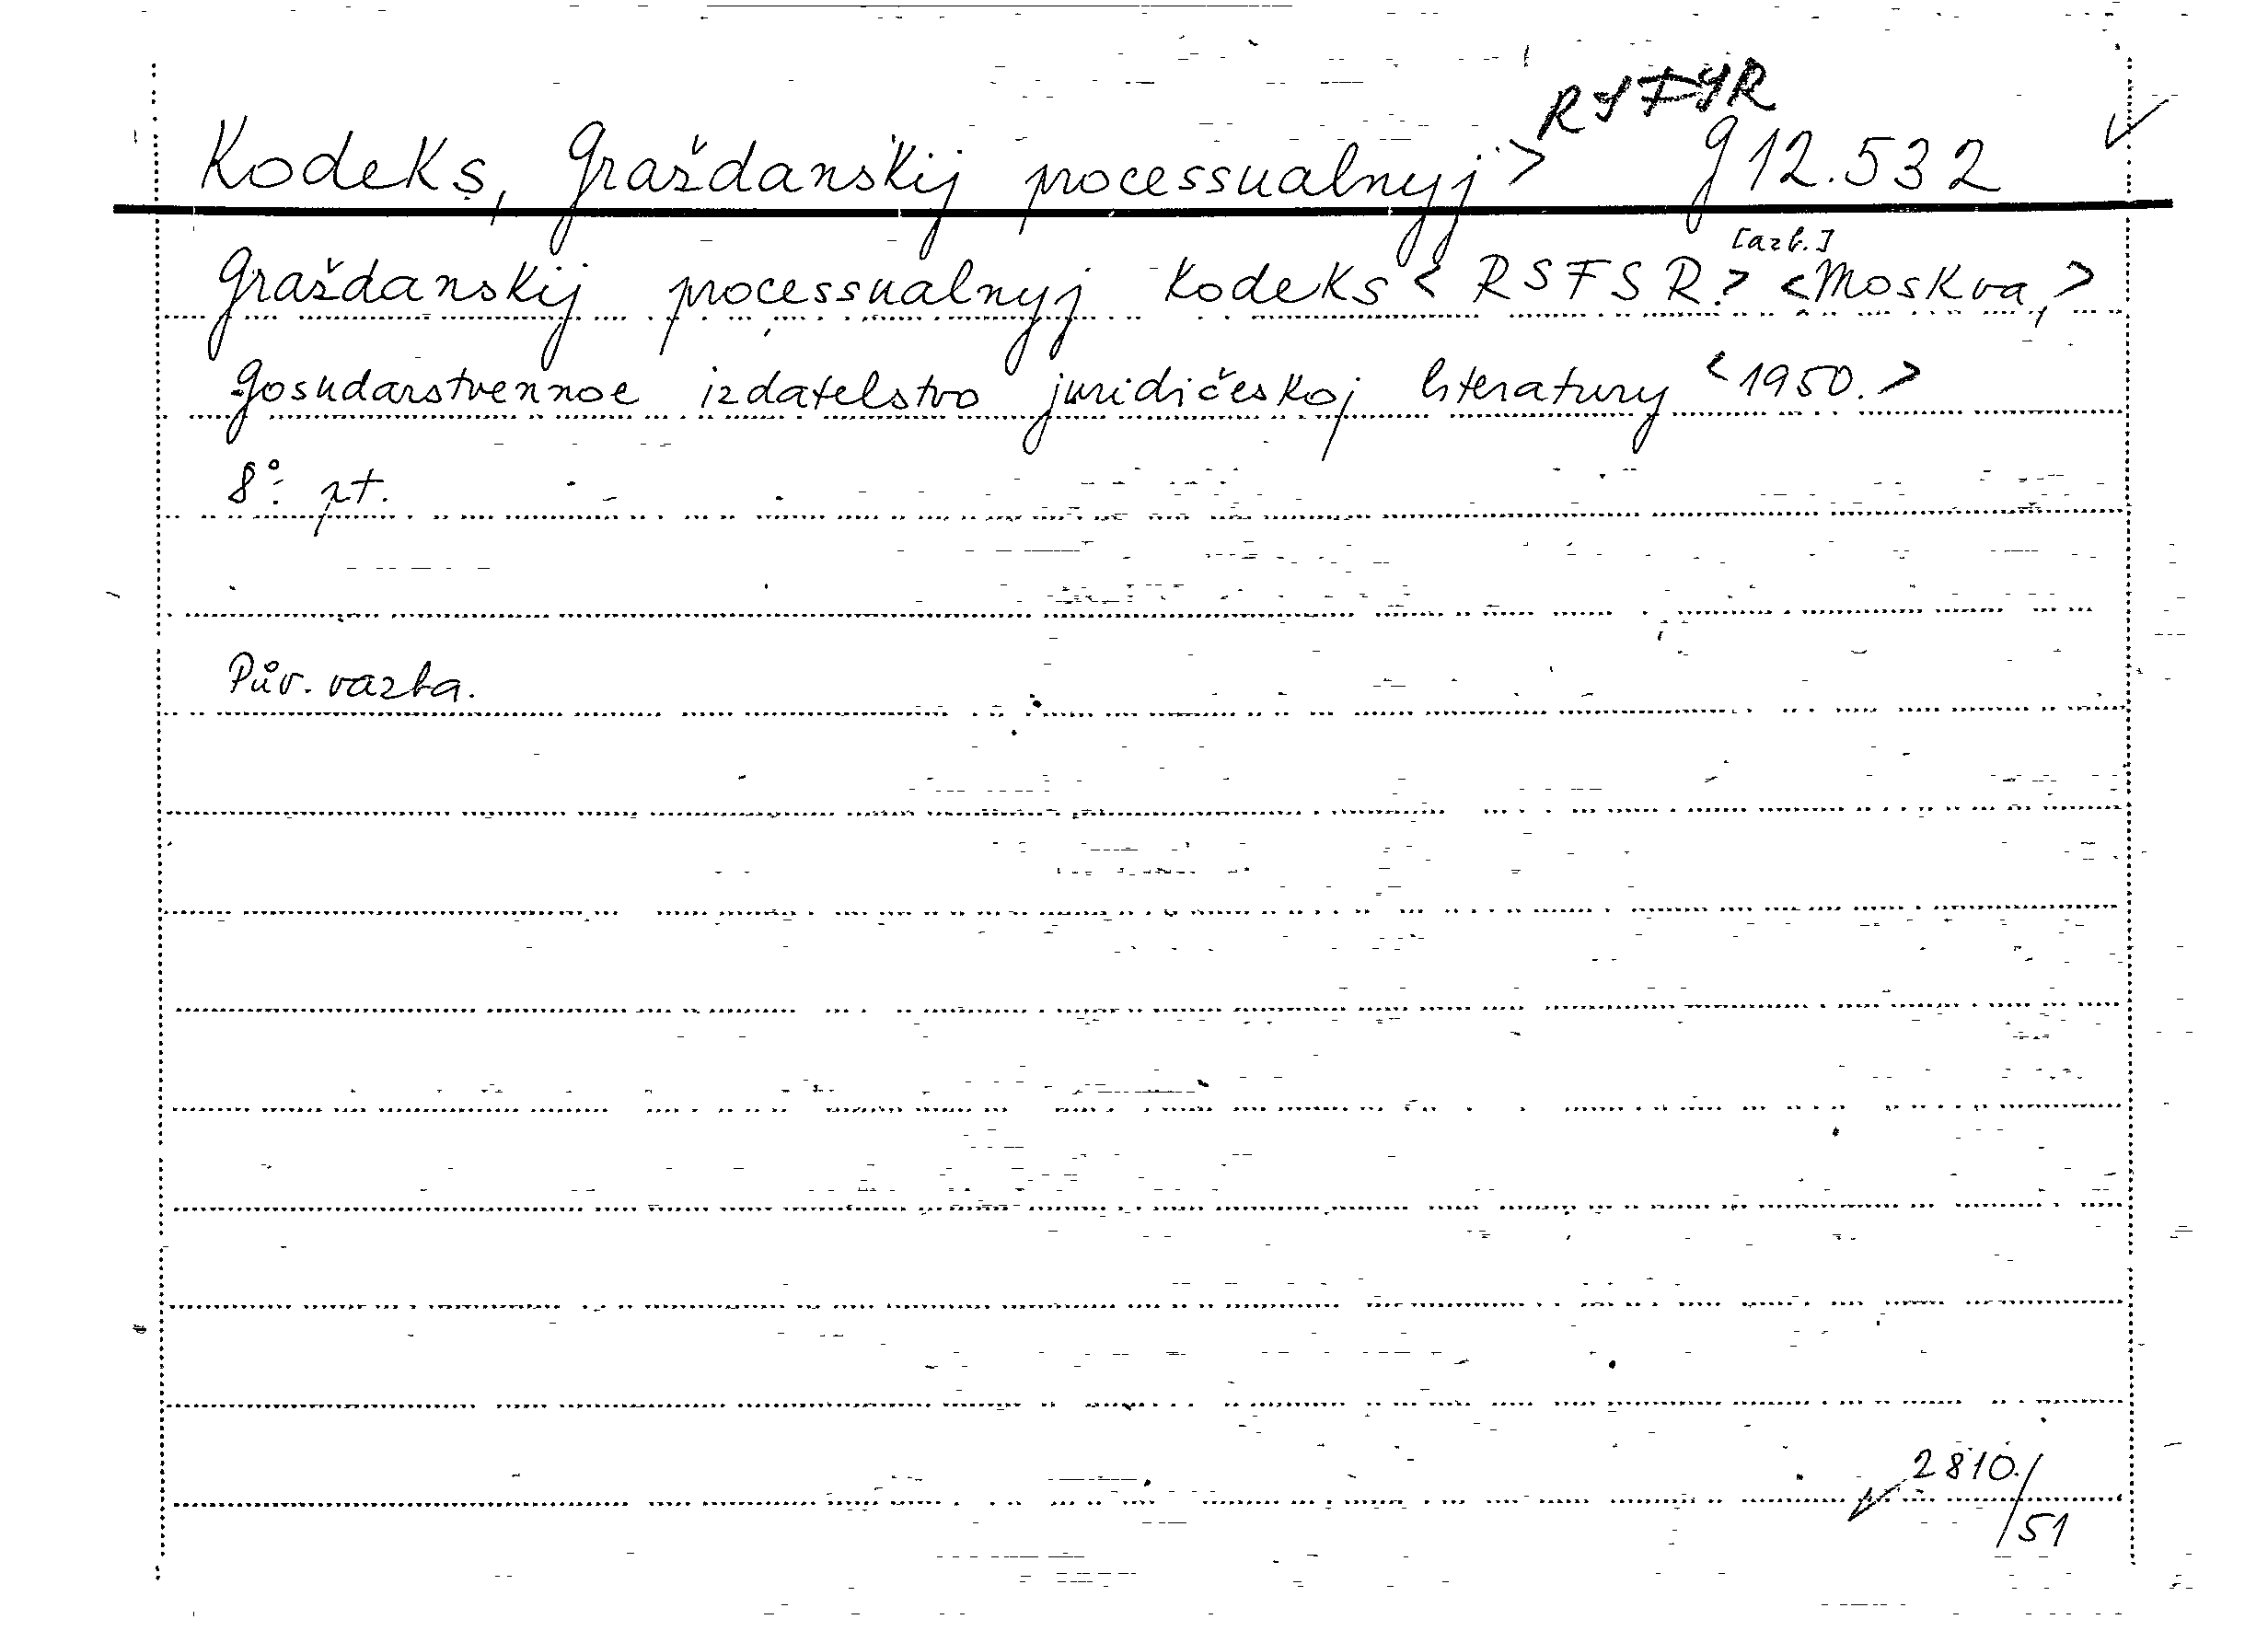 RSFSR
Kodeks, Graždanskij processualnyj > g 12.532
[azb.]
Graždanskij processualnyj kodeks < RSFSR.> <Moskva,>
Gosudarstvennoe izdatelstvo juridičeskoj literatury <1950.>
8°: pt.
Pův. vazba.
2810./
51